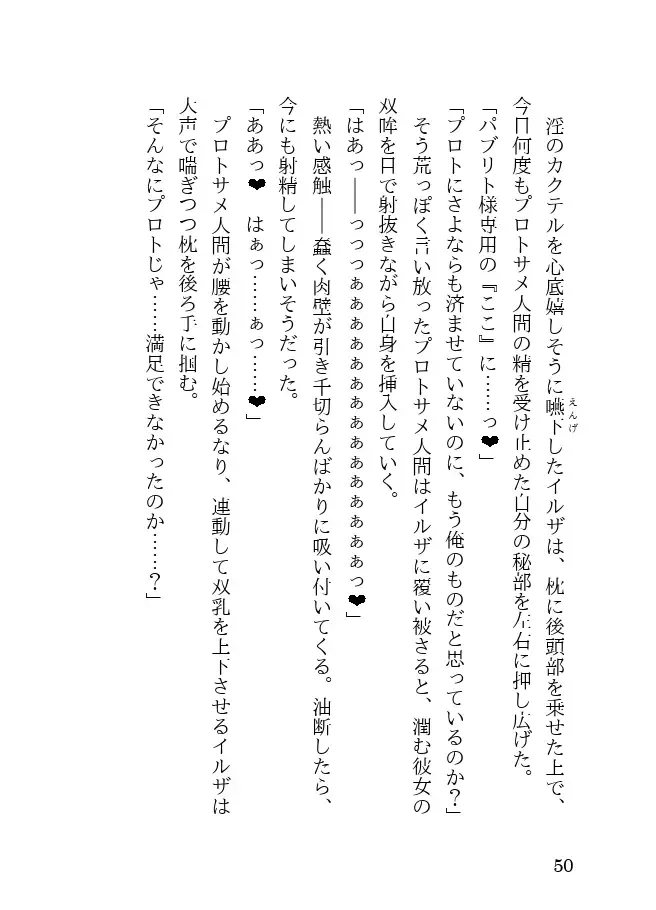 淫のカクテルを心底嬉しそうに嚥下したイルザは、枕に後頭部を乗せた上で、
えんげ
今日何度もプロトサメ人間の精を受け止めた自分の秘部を左右に押し広げた。
「パブリト様専用の『ここ』に……っ❤」
「プロトにさよならも済ませていないのに、もう俺のものだと思っているのか？」
そう荒っぽく言い放ったプロトサメ人間はイルザに覆い被さると、潤む彼女の
双眸を目で射抜きながら自身を挿入していく。
「はあっ――っっっぁぁぁぁぁぁぁぁぁぁぁぁぁぁっ❤」
熱い感触――蠢く肉壁が引き千切らんばかりに吸い付いてくる。油断したら、
今にも射精してしまいそうだった。
「ああっ❤　はぁっ……ぁっ……❤」
プロトサメ人間が腰を動かし始めるなり、連動して双乳を上下させるイルザは
大声で喘ぎつつ枕を後ろ手に掴む。
「そんなにプロトじゃ……満足できなかったのか……？」
50